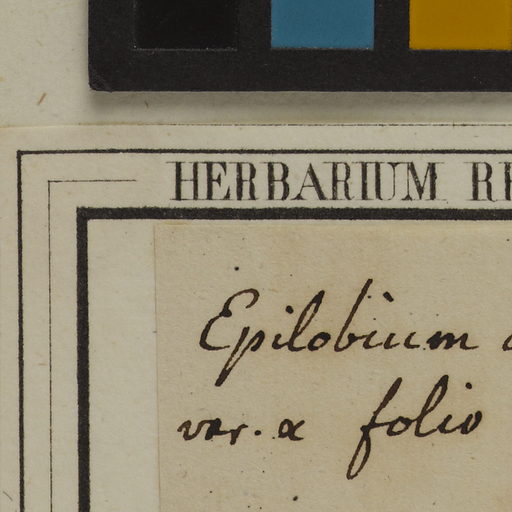 HERBARIUM
Epilobium
var. α folio